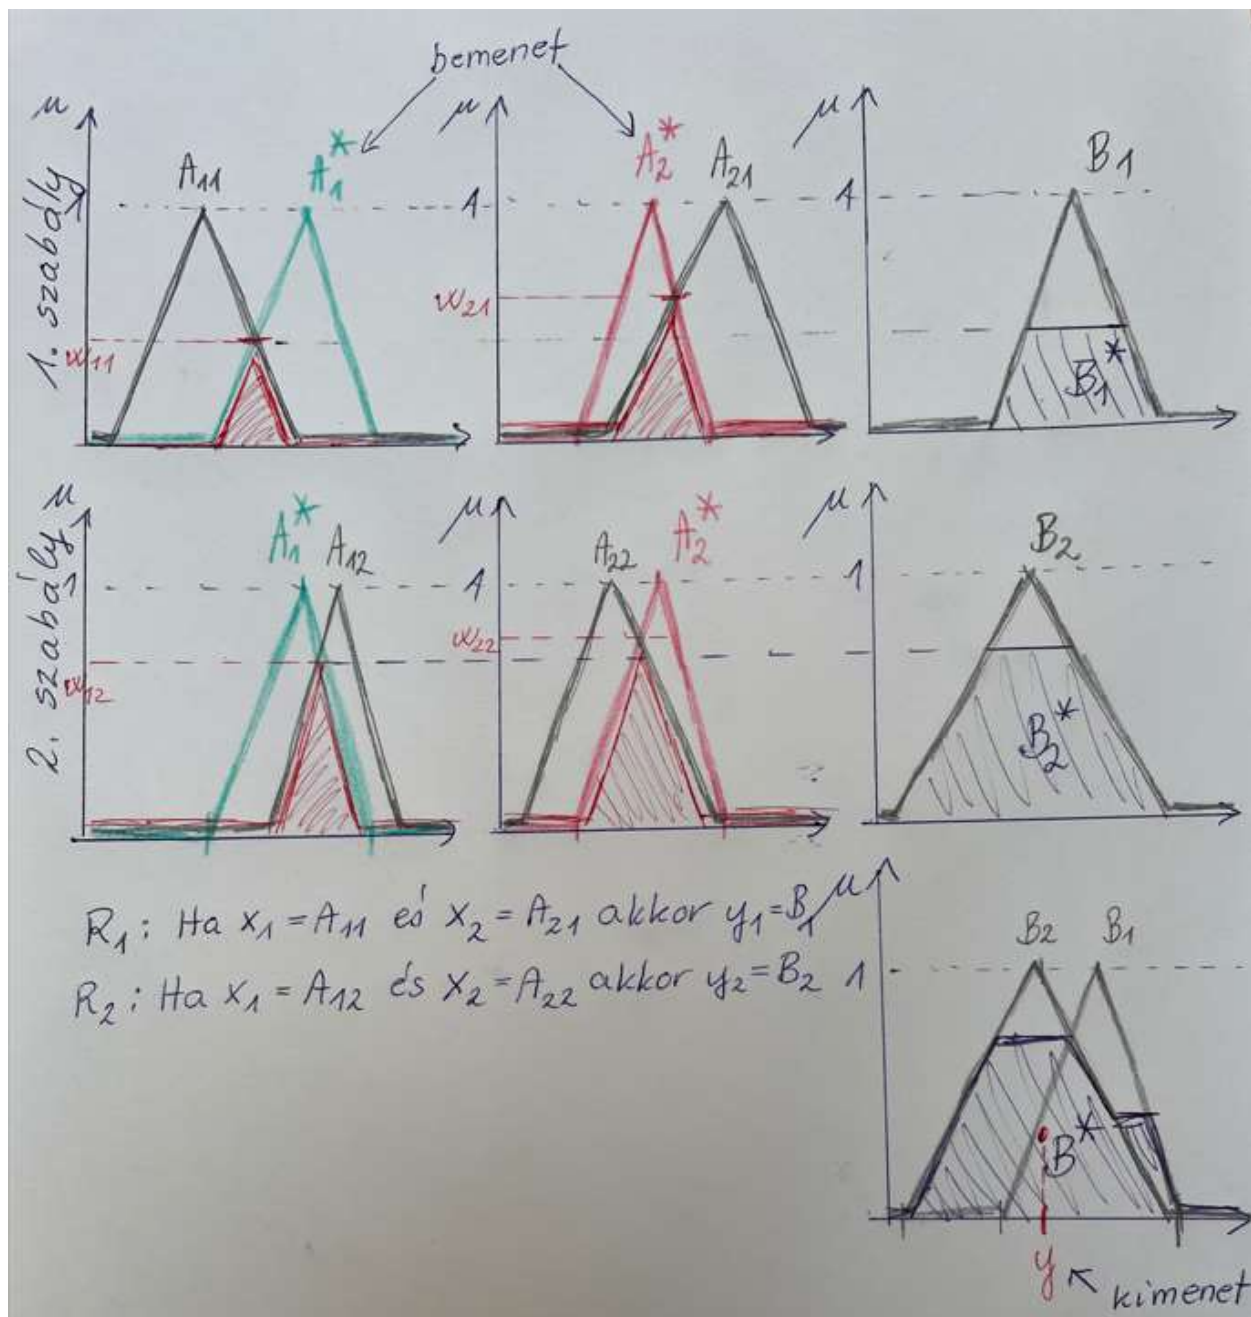 bemenet
1. szabály
μ
A11
A1*
w11
μ
1
A2*
A21
w21
μ
1
B1
B1*
2. szabály
μ
1
A1*
A12
w12
μ
1
A22
A2*
w22
μ
1
B2
B2*
R1: Ha x1 = A11 és x2 = A21 akkor y1 = B1
R2: Ha x1 = A12 és x2 = A22 akkor y2 = B2
μ
1
B2
B1
B*
y
kimenet